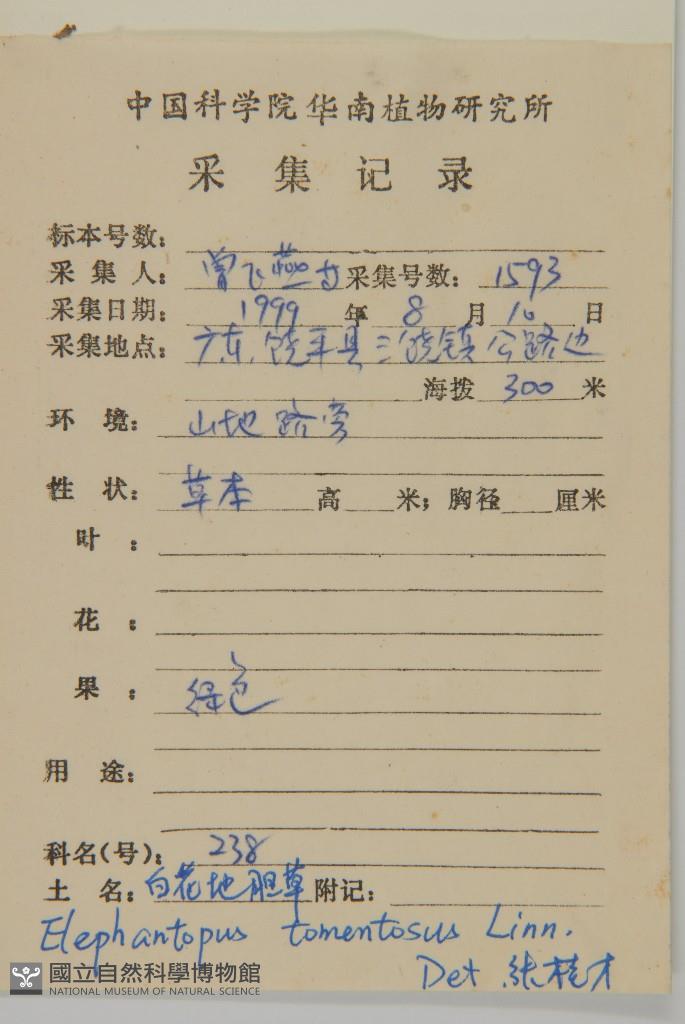 中国科学院华南植物研究所
采集记录
标本号数:
采集人: 曾飞燕 采集号数: 1593
采集日期: 1999 年 8 月 10 日
采集地点: 广东、饶平县三饶镇公路边
海拨 300 米
环境: 山地路旁
性状: 草本 高 米; 胸径 厘米
叶:
花:
果: 绿色
用途:
科名(号): 238
土名: 白花地胆草 附记:
Elephantopus tomentosus Linn.
Det 张桂才
國立自然科學博物館
NATIONAL MUSEUM OF NATURAL SCIENCE